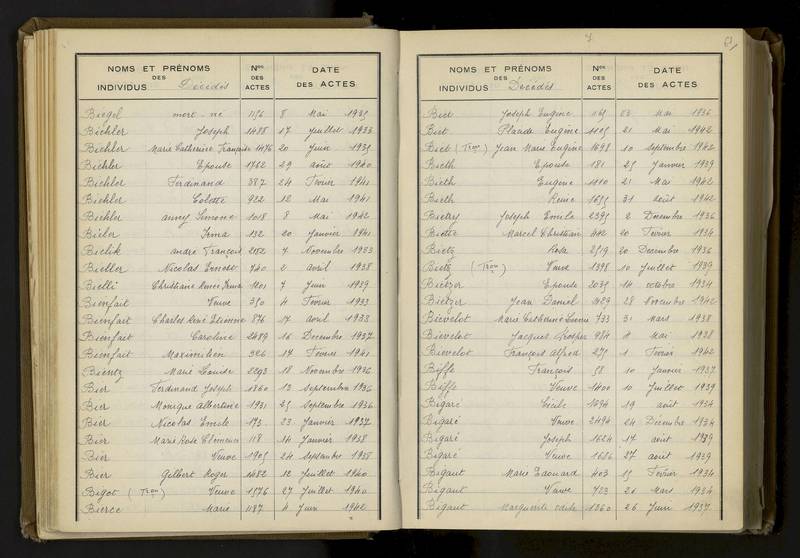 NOMS ET PRÉNOMS DES INDIVIDUS Décédés Nos DES ACTES DATE DES ACTES
Biegel mort-né 1156 8 Mai 1935
Biehler Joseph 1488 17 Juillet 1933
Biehler Marie Catherine Françoise 1476 20 Juin 1935
Biehler Epouse 1762 29 août 1940
Biehler Ferdinand 387 24 Février 1941
Biehler Colette 922 12 Mai 1941
Biehler Anny Simone 1018 8 Mai 1942
Bieler Irma 132 20 Janvier 1941
Bielik André François 2152 7 Novembre 1933
Bieller Nicolas Ernest 740 2 avril 1938
Bielli Christiane Renée Irma 1101 7 Juin 1939
Bienfait Veuve 350 4 Février 1933
Bienfait Charles René Etienne 876 17 avril 1933
Bienfait Caroline 2489 16 Décembre 1937
Bienfait Maximilien 326 17 Février 1941
Bientz Marie Louise 2293 18 Novembre 1936
Bier Ferdinand Joseph 1860 13 Septembre 1936
Bier Monique Albertine 1931 25 Septembre 1936
Bier Nicolas Emile 173 23 Janvier 1937
Bier Marie Rose Clémence 118 14 Janvier 1938
Bier Veuve 1905 24 Septembre 1938
Bier Gilbert Roger 1482 12 Juillet 1940
Bigot (Tron) Veuve 1576 27 Juillet 1940
Bierce Marie 1187 4 Juin 1942
NOMS ET PRÉNOMS DES INDIVIDUS Décédés Nos DES ACTES DATE DES ACTES
Biet Joseph Eugène 1165 Mai 1936
Biet Claude Eugène 1105 21 Mai 1942
Biet (Tron) Jean Marie Eugène 1698 10 Septembre 1942
Bieth Epouse 181 25 Janvier 1939
Bieth Eugène 1110 21 Mai 1942
Bieth Reine 1655 31 août 1942
Bietry Joseph Emile 2395 2 Décembre 1936
Marcel Christian 442 20 Février 1934
Bietz Rosa 2519 20 Décembre 1936
Bietz (Tron) Veuve 1398 10 Juillet 1939
Bietzer Epouse 2035 14 octobre 1934
Bietzer Jean Daniel 28 Novembre 1942
Bievelot Marie Catherine 733 31 Mars 1938
Bievelot Jacques Prosper 984 4 Mai 1938
Bievelot François Alfred 275 1 Février 1942
Biffe François 58 10 Janvier 1937
Biffe Veuve 1400 10 Juillet 1939
Bigaré Cécile 1694 19 août 1934
Bigaré Veuve 2494 24 Décembre 1934
Bigaré Joseph 1624 17 août 1939
Bigaré Veuve 1686 27 août 1939
Bigaut Marie Edouard 403 15 Février 1934
Bigaut Veuve 723 26 Mars 1934
Bigaut Marguerite Odile 1360 26 Juin 1937